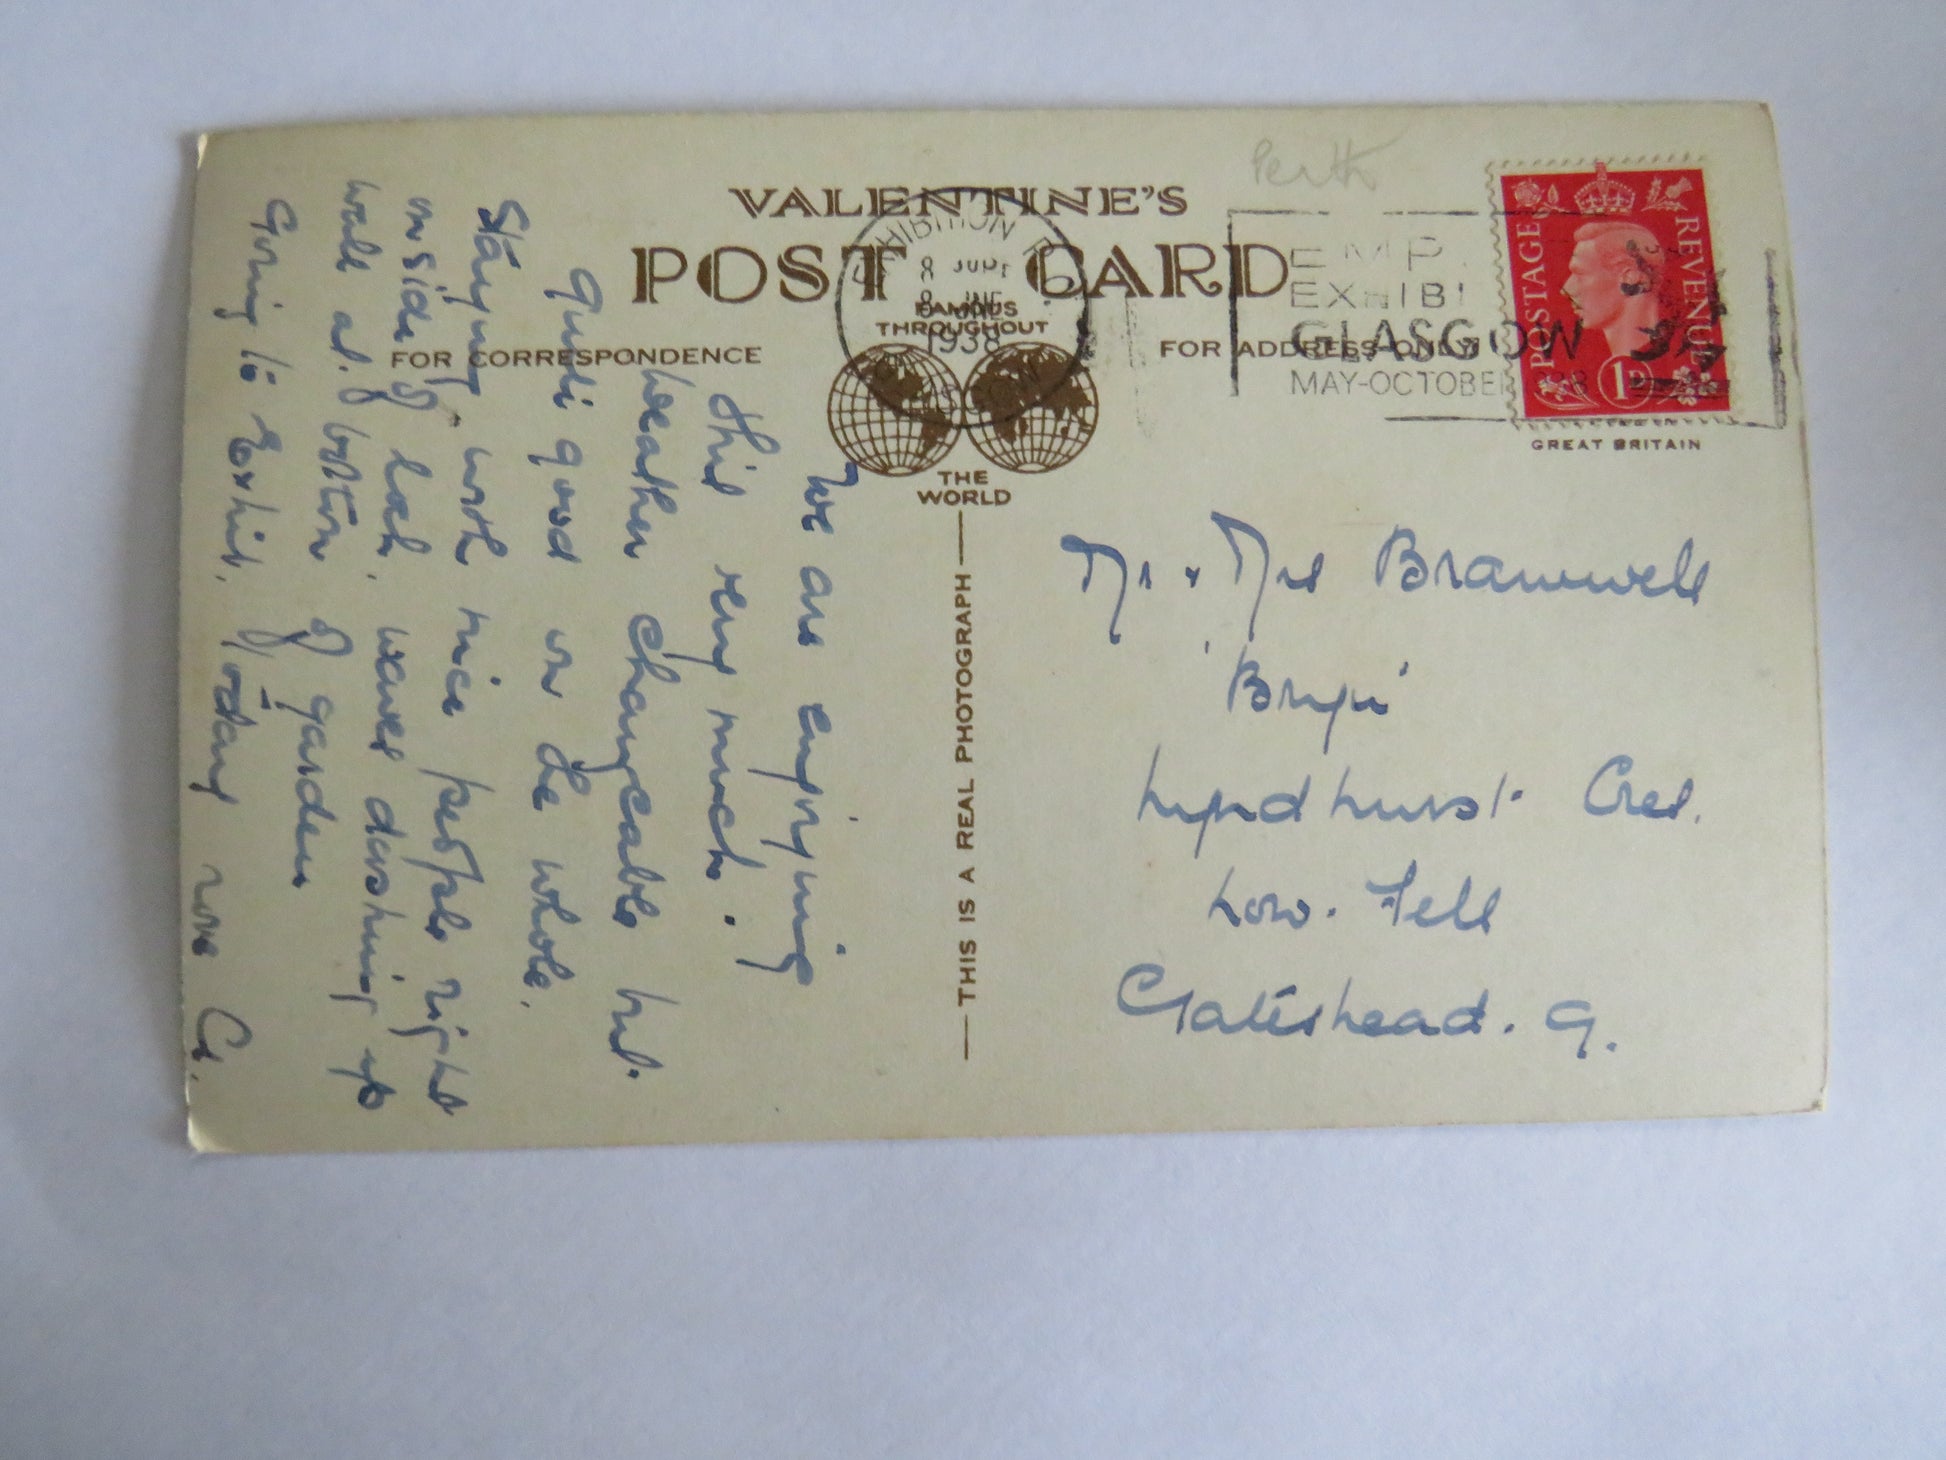 Perth
VALENTINE'S
POST CARD
FAMOUS
THROUGHOUT
THE
WORLD
FOR CORRESPONDENCE
FOR ADDRESS ONLY
8 JUNE
1938
EXHIBITION
EMP
EXHIBI
GLASGOW
MAY-OCTOBER 1938
POSTAGE
REVENUE
1D
GREAT BRITAIN
THIS IS A REAL PHOTOGRAPH
We are enjoying
this very much.
Weather changeable but
quite good on the whole.
Staying with nice people right
inside of loch. waves dashing up
wall at bottom of garden
Going to Exhib. today
Mr & Mrs Bramwell
Lyndhurst Cres.
Low. Fell
Gateshead. 9.